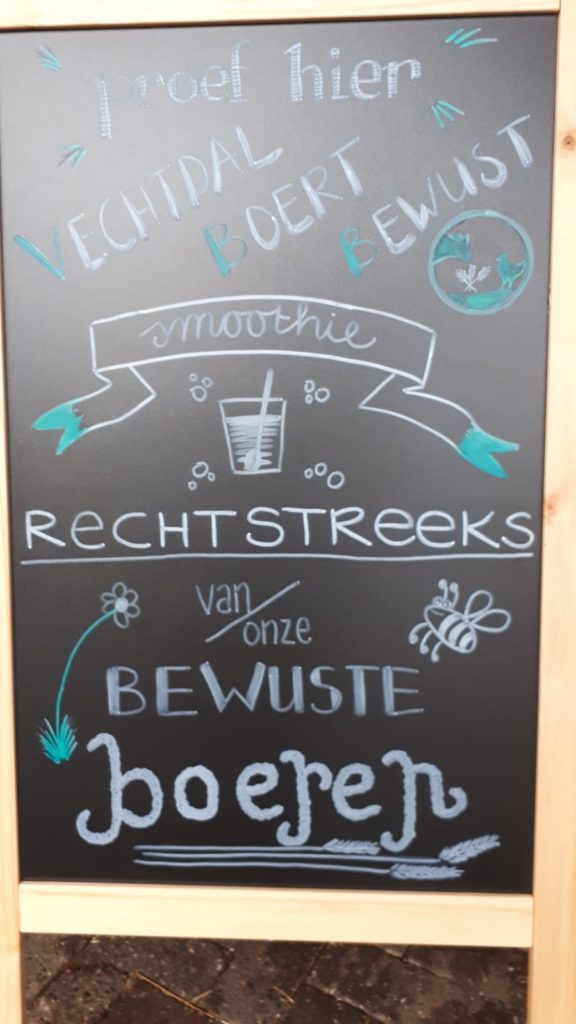 proef hier
VECHTDAL BOERT BEWUST
smoothie
RECHTSTREEKS
van/onze
BEWUSTE
boeren